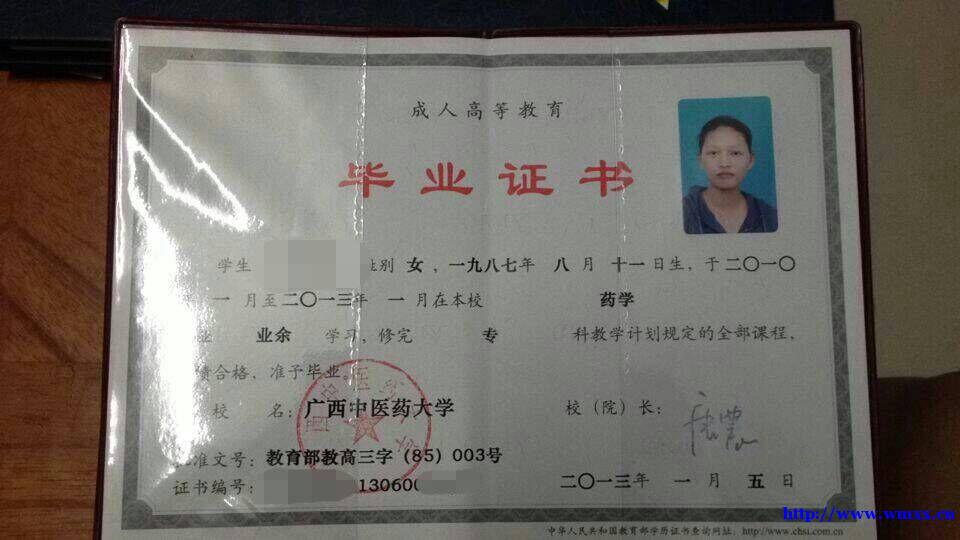 成人高等教育
毕业证书
学生 性别 女，一九八七年 八 月 十一日生，于二〇一〇
一 月至二〇一三年 一 月在本校 药学
业余 学习，修完 专 科教学计划规定的全部课程，
绩合格，准予毕业。
校 名：广西中医药大学 校（院）长：
准文号：教育部教高三字（85）003号
证书编号： 13060 二〇一三年 一 月 五 日
中华人民共和国教育部学历证书查询网址：http://www.chsi.com.cn
http://www.wmxx.cn